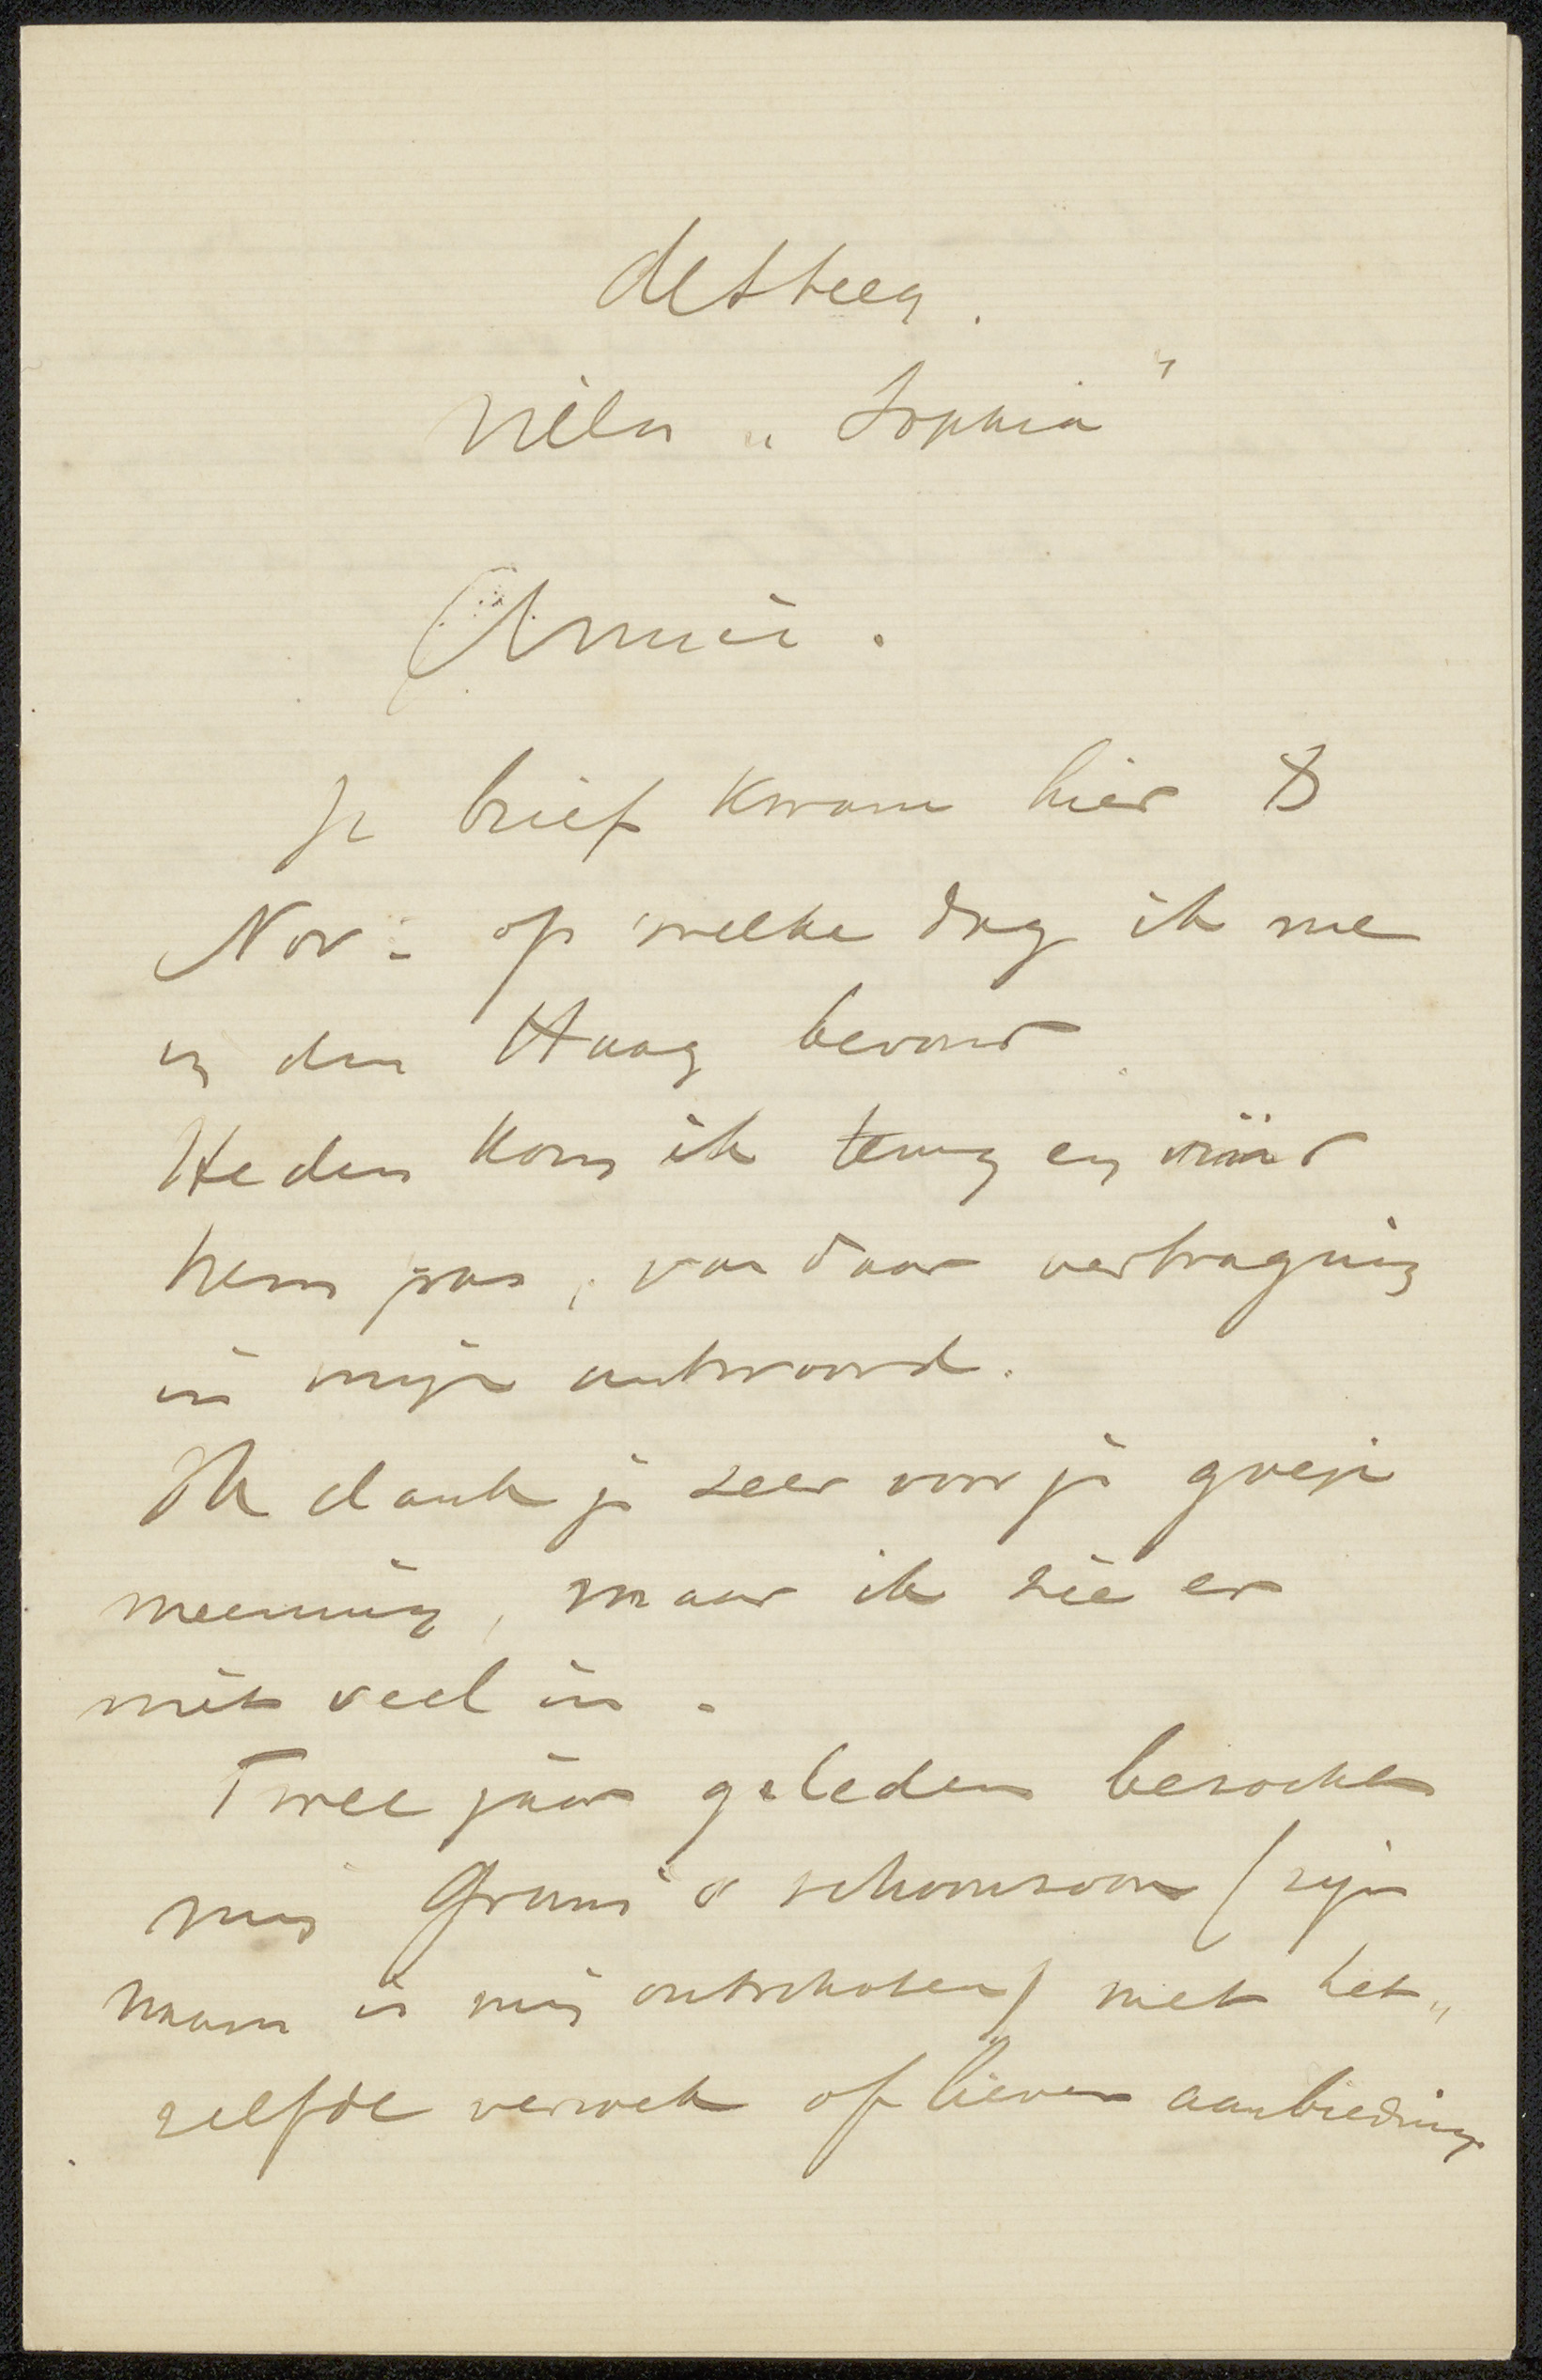 de Steeg.
Villa „ Sophia "
Amice.
Je brief kwam hier 8
Nov: op welke dag ik me
in den Haag bevond.
Heden kom ik terug en vind
hem pas, van daar vertraging
in mijn antwoord.
Ik dank je zeer voor je goeje
meening, maar ik zie er
niet veel in.
Twee jaar geleden bezocht
mij schoonzoon (zijn
naam is mij ontschoten) met het„
zelfde verzoek of liever aanbieding